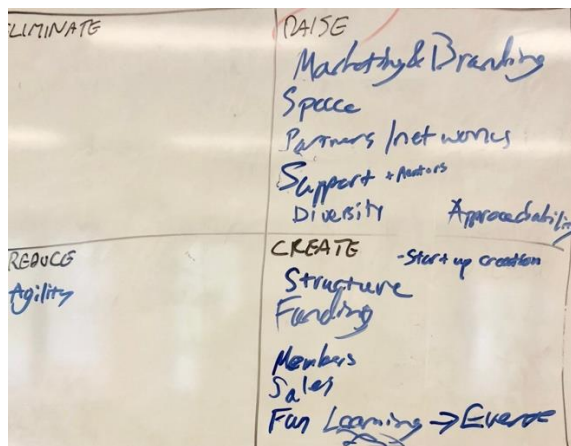 ELIMINATE
RAISE
Marketing & Branding
Space
Partners/networks
Support +
Diversity
Approachability
REDUCE
Agility
CREATE
-Start up creation
Structure
Funding
Members
Sales
Fun Learning →